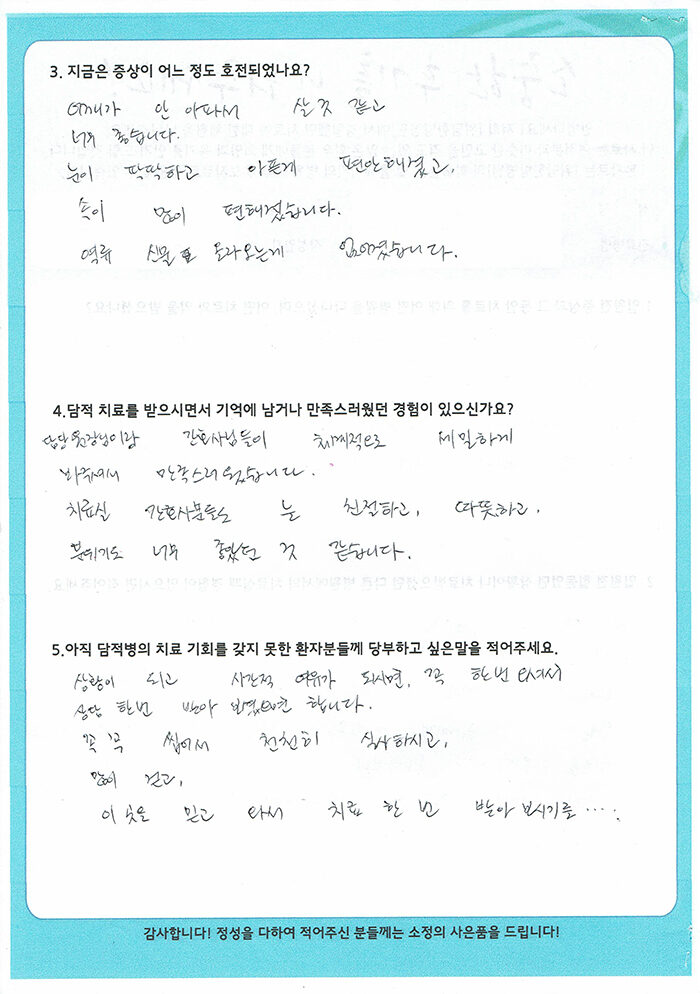 3. 지금은 증상이 어느 정도 호전되었나요?
어깨가 안 아파서 살것 같고
너무 좋습니다.
눈이 딱딱하고 아픈게 편안해졌고,
속이 많이 편해졌습니다.
역류 신물 올라오는게 없어졌습니다.
4.담적 치료를 받으시면서 기억에 남거나 만족스러웠던 경험이 있으신가요?
담당 원장님이랑 간호사님들이 체계적으로 세밀하게
봐주셔서 만족스러웠습니다.
치료실 간호사분들도 친절하고, 따뜻하고,
분위기도 너무 좋았던 것 같습니다.
5.아직 담적병의 치료 기회를 갖지 못한 환자분들께 당부하고 싶은말을 적어주세요.
상황이 되고 시간적 여유가 되시면, 꼭 한번 오셔서
상담 한번 받아 보셨으면 합니다.
꼭꼭 씹어서 천천히 식사하시고,
많이 걷고,
이 곳을 믿고 와서 치료 한 번 받아 보시기를 ....
감사합니다! 정성을 다하여 적어주신 분들께는 소정의 사은품을 드립니다!